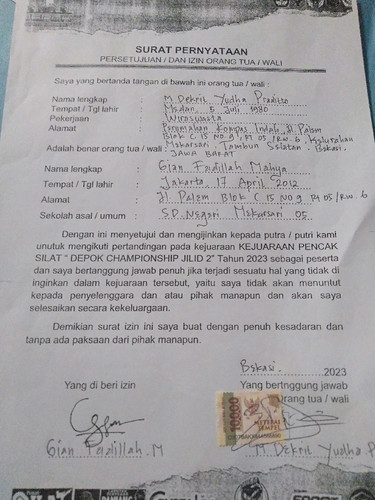 SURAT PERNYATAAN
PERSETUJUAN / DAN IZIN ORANG TUA / WALI
Saya yang bertanda tangan di bawah ini orang tua / wali :
Nama lengkap : M. Dekrit Yudha Pradito
Tempat / Tgl lahir : Medan, 5 Juli 1980
Pekerjaan : Wiraswasta
Alamat : Perumahan Kompas Indah Jl. Palem
Blok C 15 NO 9, Rt 05 / RW. 6 Kelurahan
Mekarsari Tambun Selatan - Bekasi.
Adalah benar orang tua / wali :
JAWA BARAT
Nama lengkap : Gian Fadillah Mahya
Tempat / Tgl lahir : Jakarta, 17 April 2012
Alamat : Jl Palem Blok C 15 NO 9 Rt 05 / RW. 6
Sekolah asal / umum : S.D Negeri Mekarsari 05
Dengan ini menyetujui dan mengijinkan kepada putra / putri kami
unutuk mengikuti pertandingan pada kejuaraan KEJUARAAN PENCAK
SILAT " DEPOK CHAMPIONSHIP JILID 2" Tahun 2023 sebagai peserta
dan saya bertanggung jawab penuh jika terjadi sesuatu hal yang tidak di
inginkan dalam kejuaraan tersebut, yaitu saya tidak akan menuntut
kepada penyelenggara dan atau pihak manapun dan akan saya
selesaikan secara kekeluargaan.
Demikian surat izin ini saya buat dengan penuh kesadaran dan
tanpa ada paksaan dari pihak manapun.
Bekasi, ............2023
Yang di beri izin
Yang bertnggung jawab
Orang tua / wali
10000
METERAI
TEMPEL
Gian Fadillah. M
M. Dekrit Yudha P